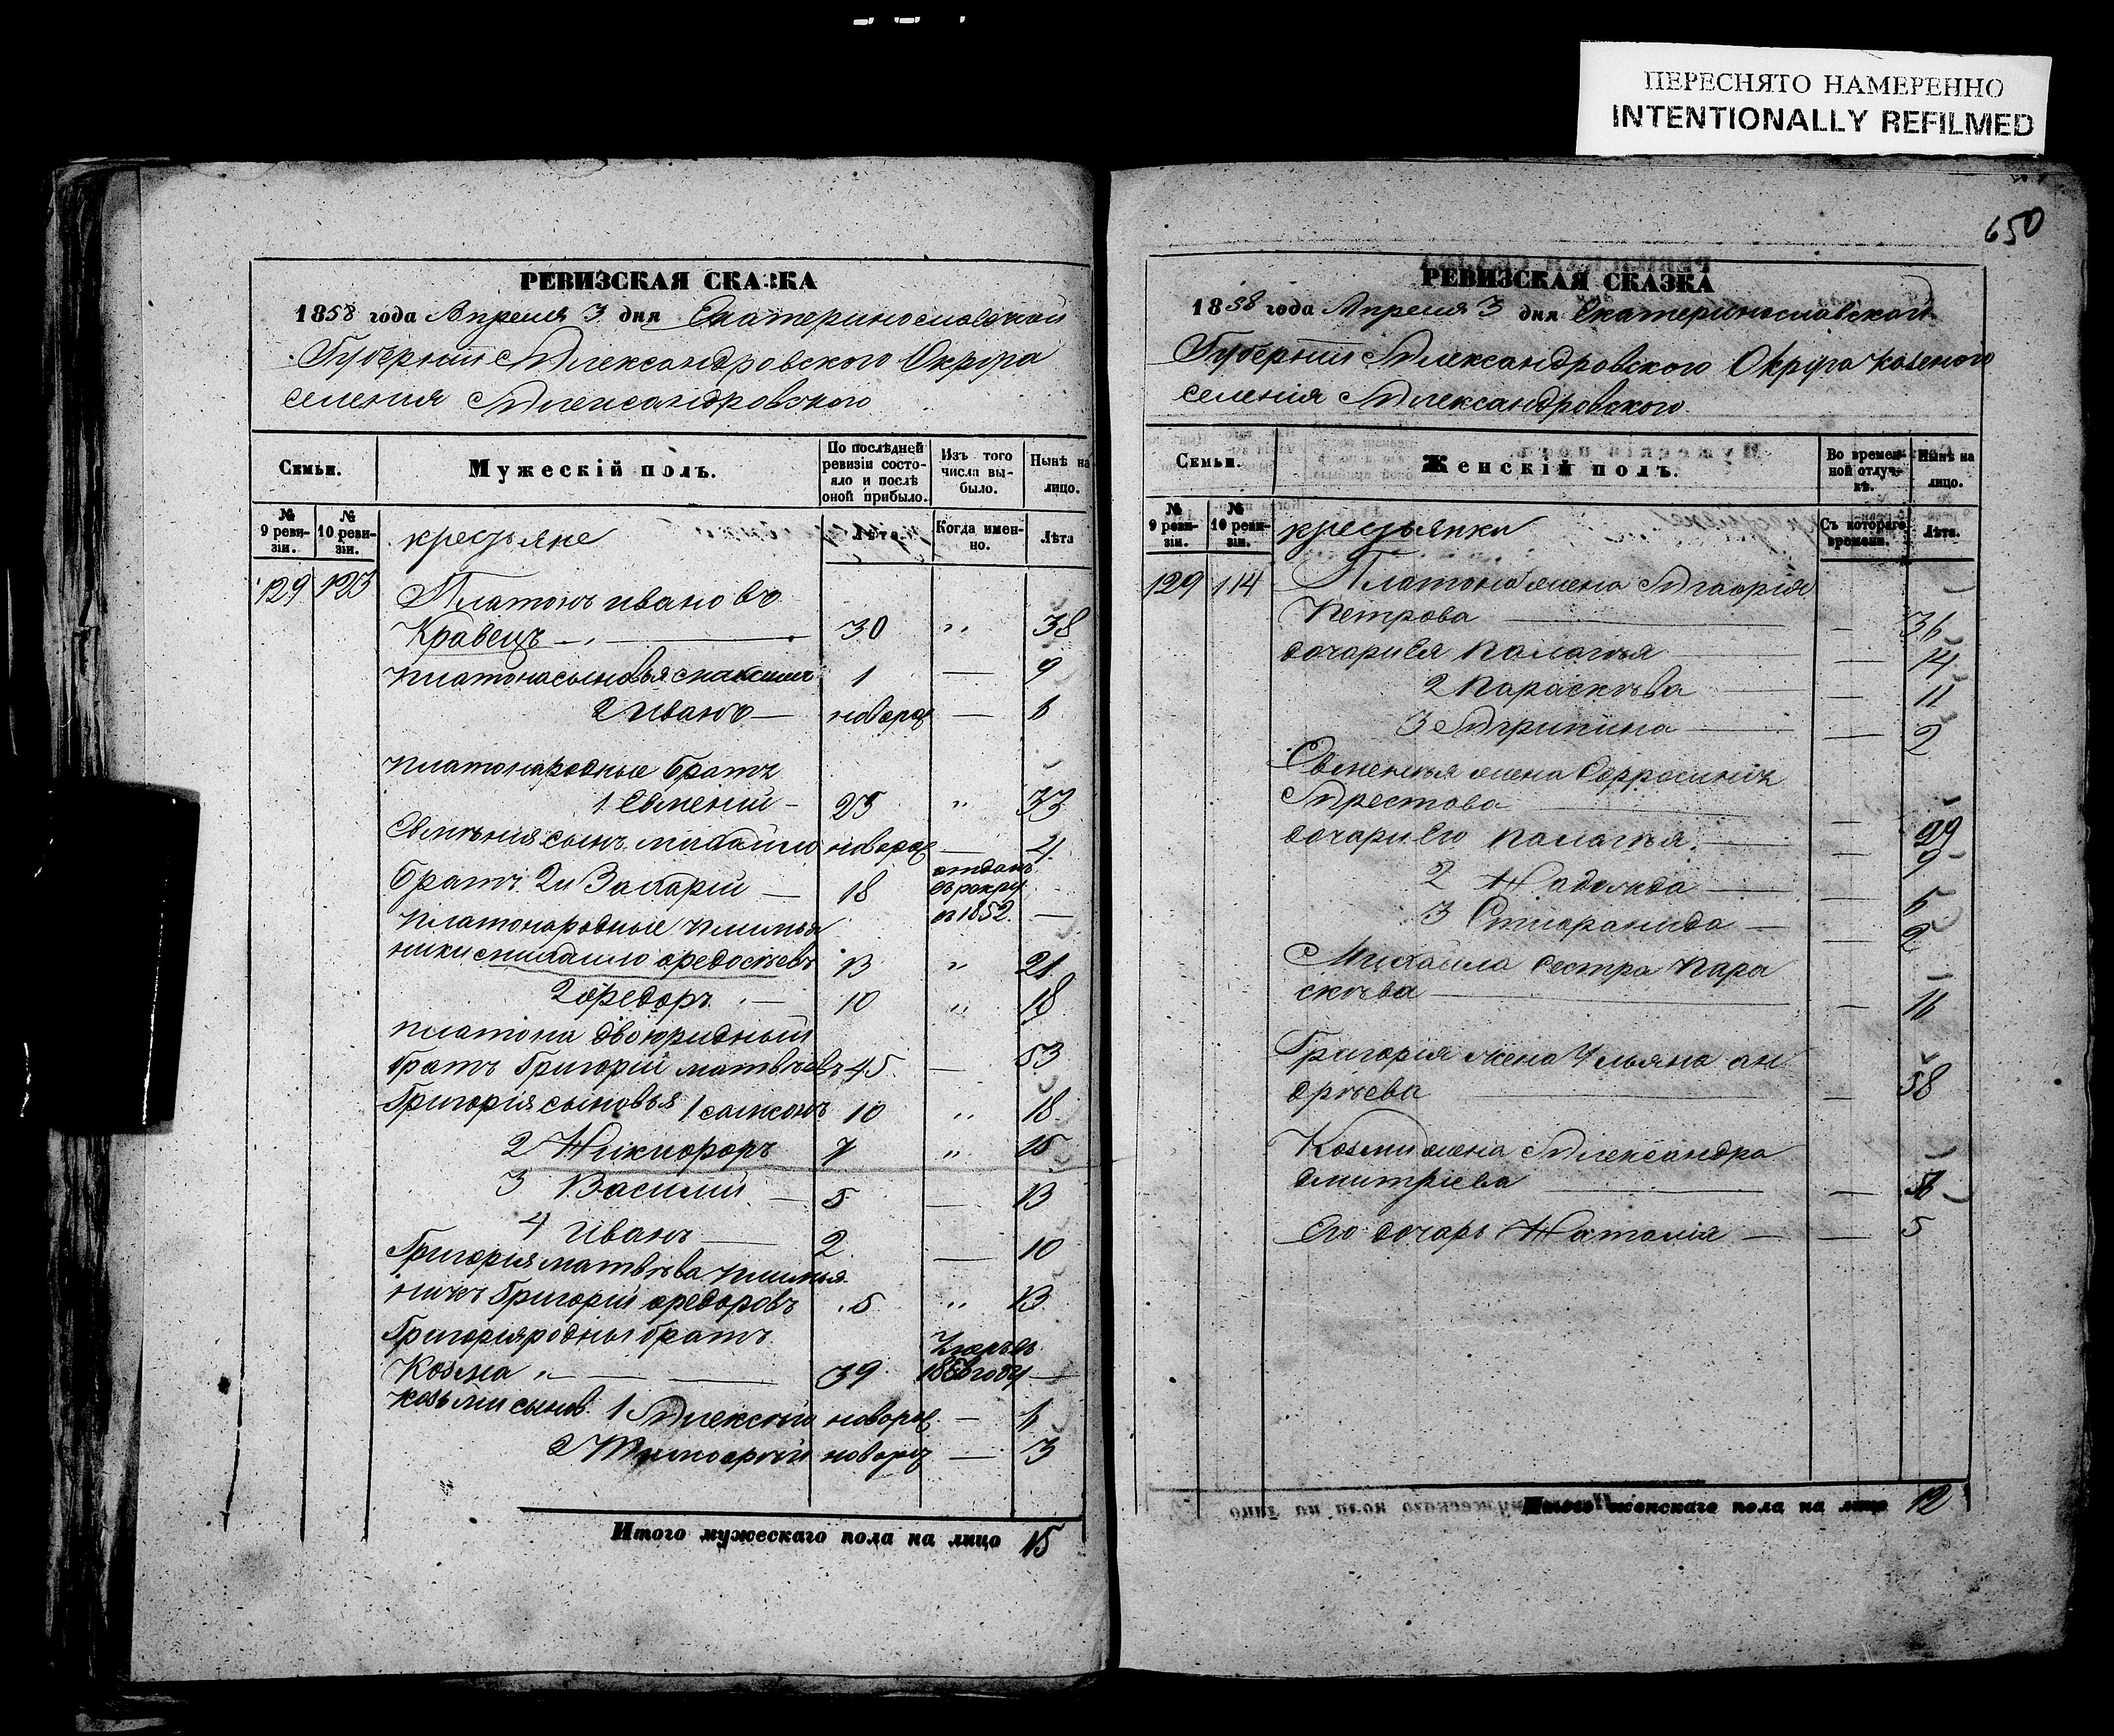 ПЕРЕСНЯТО НАМЕРЕННО
INTENTIONALLY REFILMED
РЕВИЗСКАЯ СКАЗКА
1858 года Апреля 3 дня Екатеринославской
Губернии Александровского Округа
селения Александровского
Семьи.
Мужескій полъ.
По послѣдней ревизіи состояло и послѣ оной прибыло.
Изъ того числа выбыло.
Нынѣ на лицо.
№ 9 ревизіи.
№ 10 ревизіи.
крестьяне
Лѣта.
Когда именно.
Лѣта
129 123 Платонъ ивановъ
Кравецъ 30 " 38
платона сыновья 1 максимъ 1 — 9
2 Иванъ — новорож — 6
платона родные братъ
1 Евмений — 25 " 33
Евмѣния сынъ михайло новорож — 4
братъ 2й Захарій — 18 отданъ в рекру в 1852. —
платона родные племья
ники михайло федосѣевъ 13 " 21
2 федоръ — 10 " 18
платона двоюридный
братъ Григорій матвѣевъ 45 — 53
Григорія сыновья 1 самсонъ 10 " 18
2 Никифоръ 7 " 15
3 Василий — 5 — 13
4 Иванъ — 2 — 10
Григория матвѣева племья
никъ Григорій федоровъ 5 " 13
Григория родны братъ
Козма " — 39 Умеръ въ году —
козьми сынов. 1 Алексѣй новорож — 6
2 Тимофѣй новорож — 3
Итого мужескаго пола на лицо 15
650
РЕВИЗСКАЯ СКАЗКА
1858 года Апреля 3 дня Екатеринославской
Губернии Александровского Округа казеного
селенія Александровского.
Семьи.
Женскій полъ.
Во временной отлучкѣ.
Нынѣ на лицо.
№ 9 ревизіи.
№ 10 ревизіи.
крестьянки
Съ котораго времени.
Лѣта.
129 114 Платона жена
Петрова — — 36
дочари Ея палагѣя — 14
2 Параскѣва — 11
3 Агрипина — 2
Евменѣя жена
— 29
дочари Его палагѣя — 9
2 Надежда — 6
3 — 2
Михайла сестра Пара
скѣва — — 16
Григорія жена Ульяна ан
дрѣева — — 58
Козми жена Александра
дмитріева — —
Его дочарь Наталія — — 5
Итого женскаго пола на лицо 12